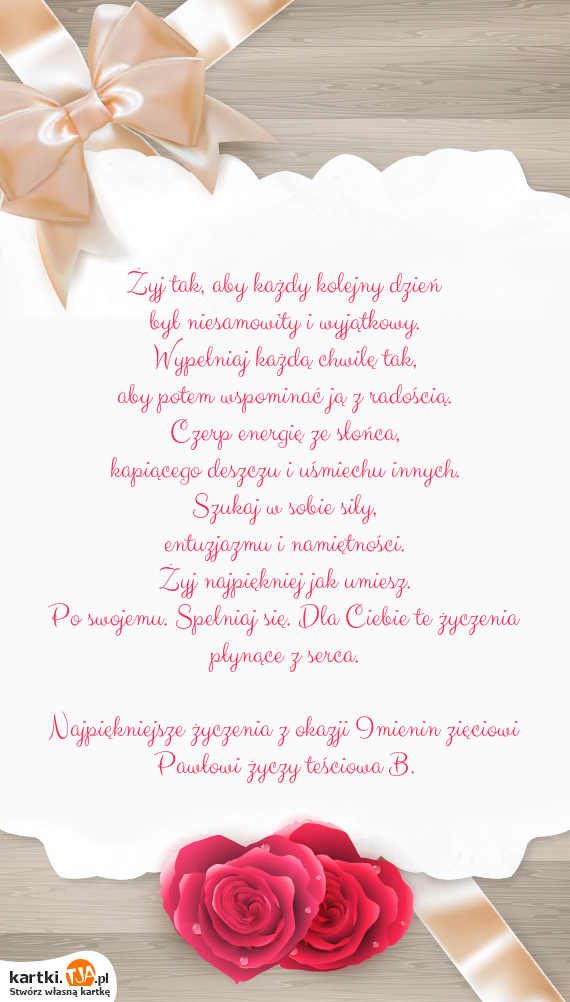 Żyj tak, aby każdy kolejny dzień
był niesamowity i wyjątkowy.
Wypełniaj każdą chwilę tak,
aby potem wspominać ją z radością.
Czerp energię ze słońca,
kapiącego deszczu i uśmiechu innych.
Szukaj w sobie siły,
entuzjazmu i namiętności.
Żyj najpiękniej jak umiesz.
Po swojemu. Spełniaj się. Dla Ciebie te życzenia
płynące z serca.
Najpiękniejsze życzenia z okazji Imienin zięciowi
Pawłowi życzy teściowa B.
kartki.TJA.pl
Stwórz własną kartkę